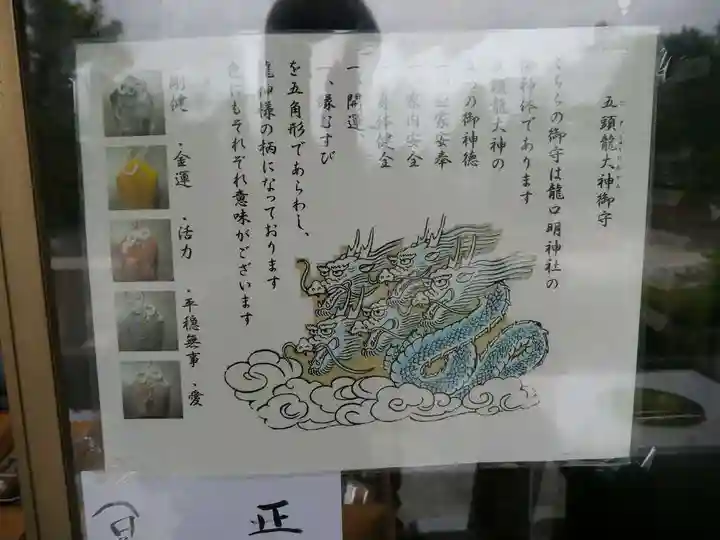 五頭龍大神御守
ごずりゅうおおかみ
こちらの御守は龍口明神社の
御神体であります
五頭龍大神の
五つの御神徳
一、
家内安全
一、身体健全
一、開運
一、縁むすび
を五角形であらわし、
龍神様の柄になっております
色にもそれぞれ意味がございます
剛健
・金運
・活力
・平穏無事
・愛
正